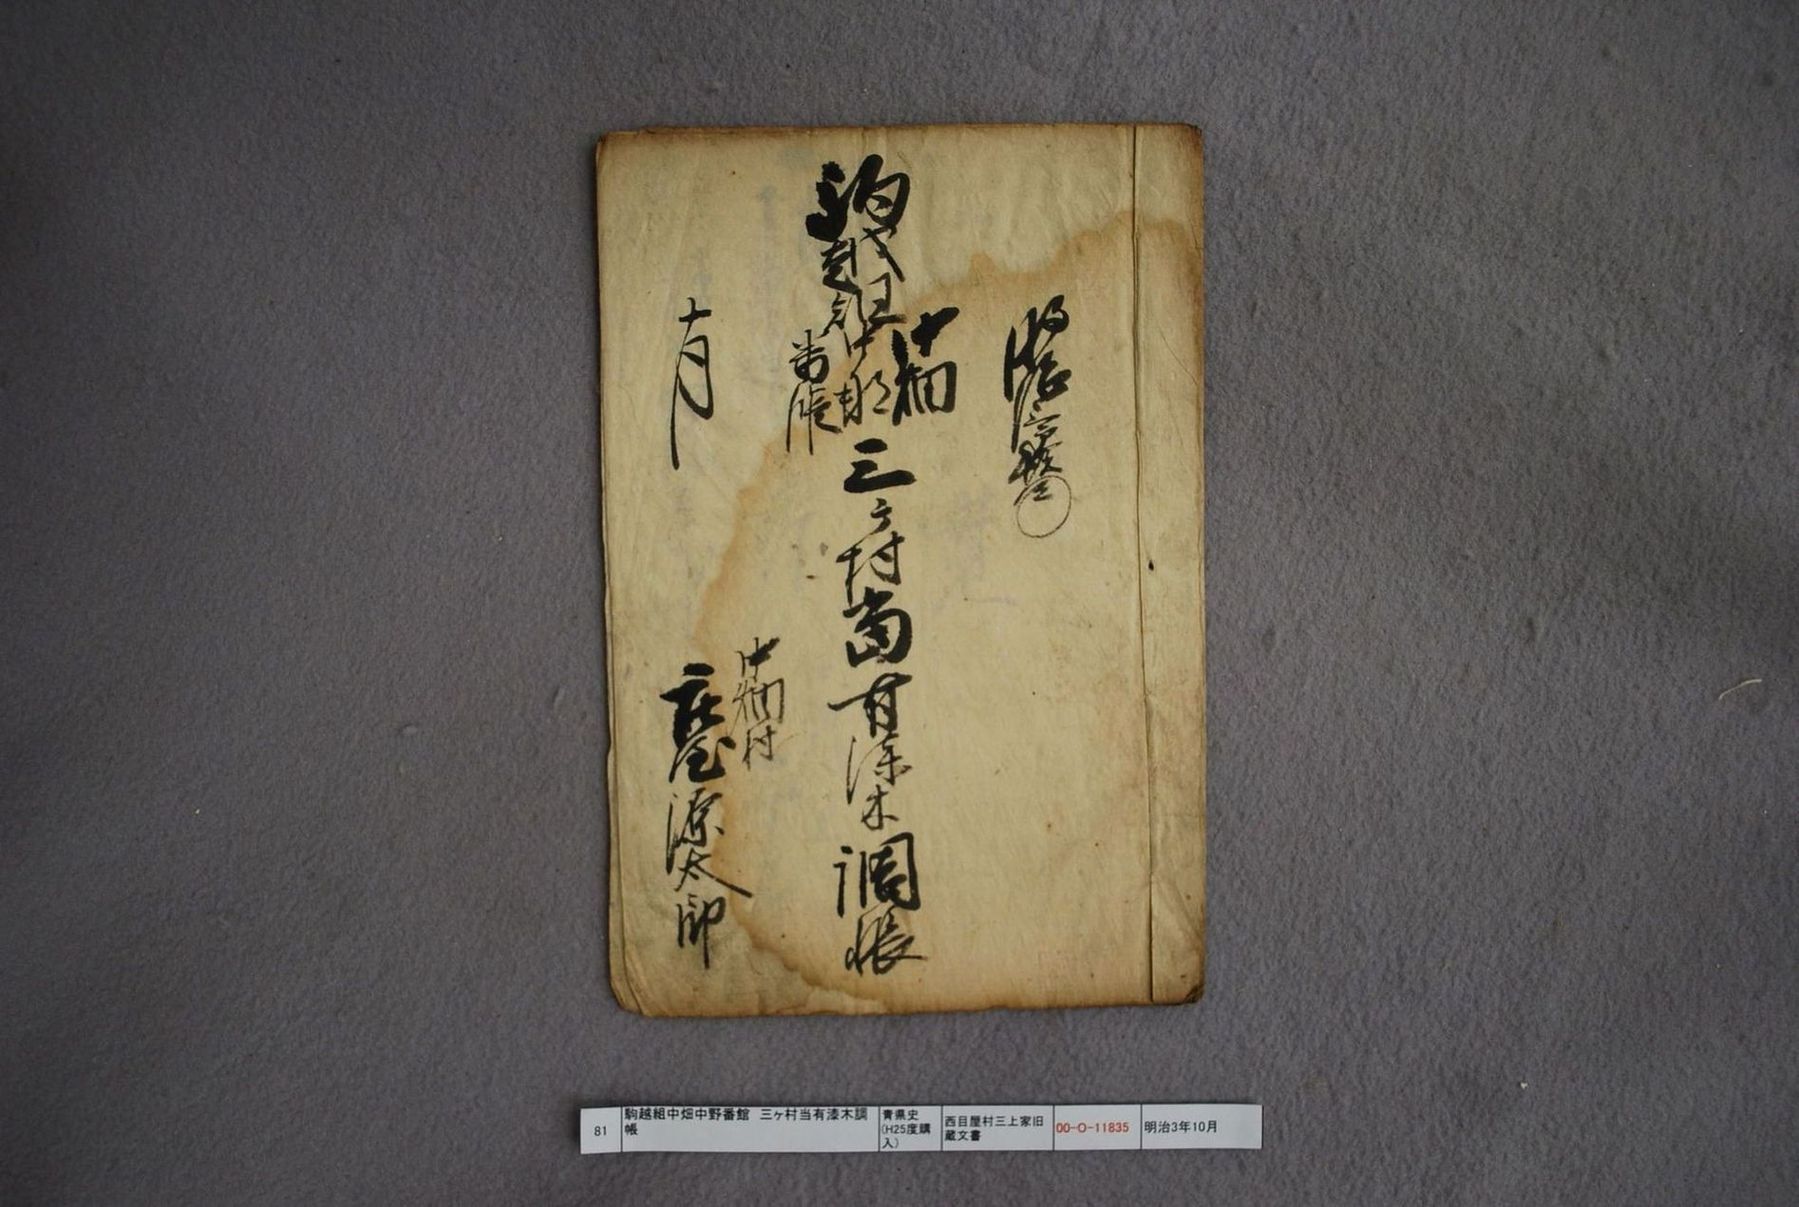 明治三
駒越組
中畑
中野
番館
三ヶ村当有漆木調帳
十月
中畑村
庄屋
源太郎
81
駒越組中畑中野番館 三ヶ村当有漆木調
帳
青県史
(H25度購
入)
西目屋村三上家旧
蔵文書
00-O-11835
明治3年10月